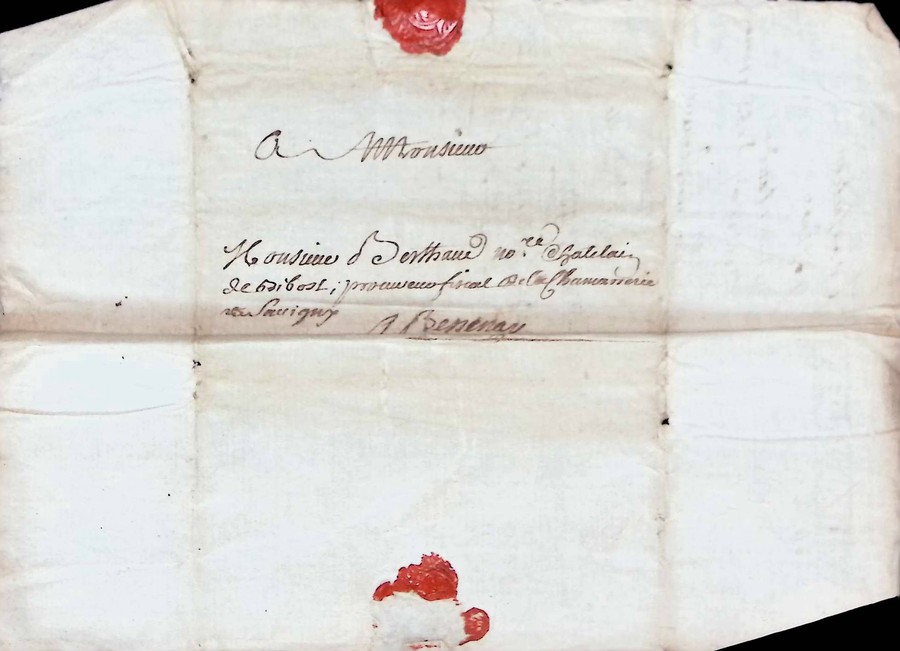 A Monsieur
Monsieur Berthaud no.re Chatelain
de Bibost, procureur fiscal de la Chamarerie
de Savigny
A Bessenay